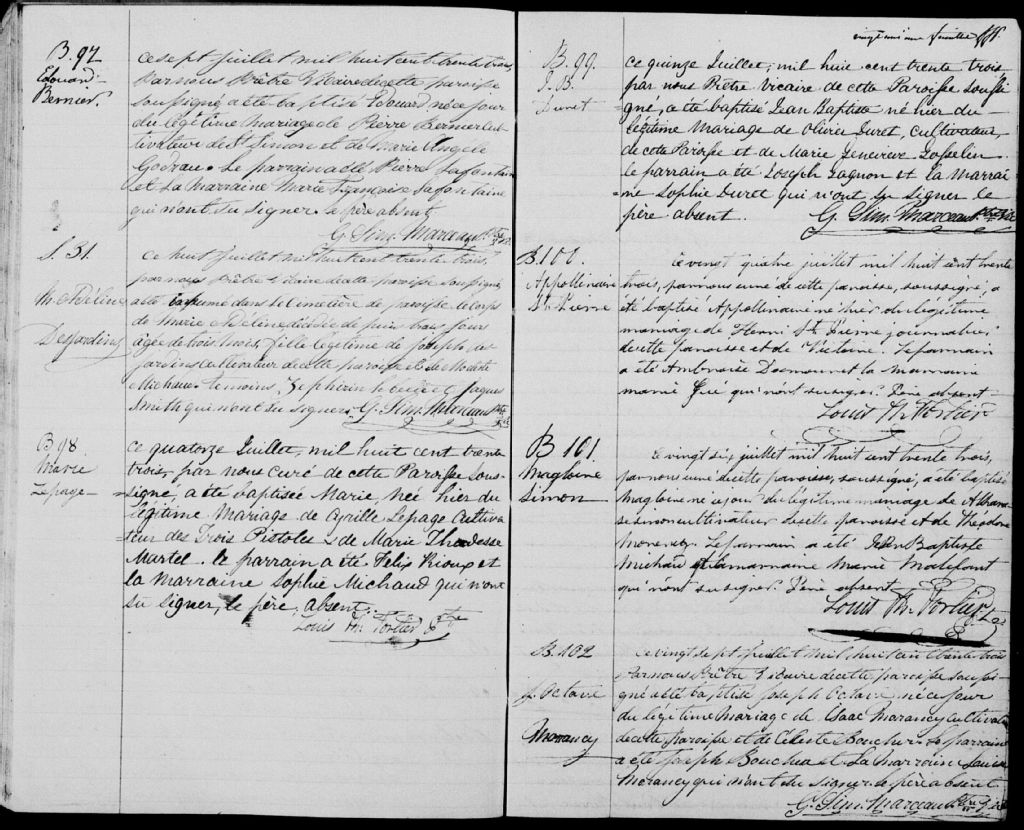 B. 97
Edouard
Bernier.
Ce sept juillet mil huit cent trente trois,
par nous Prêtre Vicaire de cette paroisse
soussigné a été baptisé Edouard né ce jour
du légitime mariage de Pierre Bernier cul-
tivateur de St Simon et de Marie Angèle
Godreau. Le parrain a été Pierre Lafontaine
et La Marraine Marie Françoise Lafontaine
qui n'ont su signer. Le père absent.
G. Sim. Marceau Ptre Vic.
S. 31.
M. Adéline
Desjardins
Ce huit juillet mil huit cent trente trois,
par nous Prêtre Vicaire de cette paroisse soussigné
a été inhumé dans le Cimetière de paroisse le corps
de Marie Adéline décédée depuis trois jours
agée de trois mois, fille légitime de Joseph des
jardins cultivateur de cette paroisse et de Modeste
Michaud. Temoins Zephirin et Jaques
Smith qui n'ont su signer. G. Sim. Marceau Ptre Vic.
B 98.
Marie
Lepage
Ce quatorze Juillet, mil huit cent trente
trois, par nous curé de cette Paroisse sous-
=signé, a été baptisée Marie, née hier du
légitime Mariage de Cyrille Lepage Cultiva
=teur des Trois Pistoles & de Marie Thadesse
Martel. le parrain a été Felix Rioux et
la Marraine Sophie Michaud qui n'ont
su signer, le père, absent.
Louis Th. Fortier Ptre
vingt unieme feuille
B. 99.
J. B.
Duret
Ce quinze Juillet, mil huit cent trente trois
par nous Prêtre Vicaire de cette Paroisse soussi
gné, a été baptisé Jean Baptiste né hier du
légitime Mariage de Olivier Duret, cultivateur,
de cette Paroisse et de Marie Genevieve Gosselin.
le parrain a été Joseph Gagnon et la marrai
=ne Sophie Duret qui n'ont su signer le
père absent.
G. Sim. Marceau Ptre Vic
B. 100.
Appollinaire
St. Pierre
Ce vingt quatre juillet mil huit cent trente
trois, par nous curé de cette paroisse, soussigné, a
été baptisé Appollinaire né hier du légitime
mariage de Henri St. Pierre journalier
de cette paroisse et de Victoire. Le parrain
a été Ambroise et la marraine
marie qui n'ont su signer. Père absent
Louis Th. Fortier
B 101.
Magloire
Simon
Ce vingt six juillet mil huit cent trente trois,
par nous curé de cette paroisse, soussigné, a été baptisé
Magloire né ce jour du légitime mariage de
Simon cultivateur de cette paroisse et de Théodore
Morency. Le parrain a été Jean Baptiste
Michau et la marraine Marie Malefant
qui n'ont su signer. Père absent
Louis Th. Fortier Ptre
B. 102
J. Octave
Morancy
Ce vingt sept juillet mil huit cent trente trois
Par nous Prêtre Vicaire de cette paroisse soussi
gné a été baptisé Joseph Octave né ce jour
du légitime mariage de Isaac Morancy Cultivat
de cette paroisse et de Céleste Boucher. Le parrain
a été Joseph Boucher et La Marraine Louise
Morancy qui n'ont su signer le père absent
G. Sim. Marceau Ptre Vic